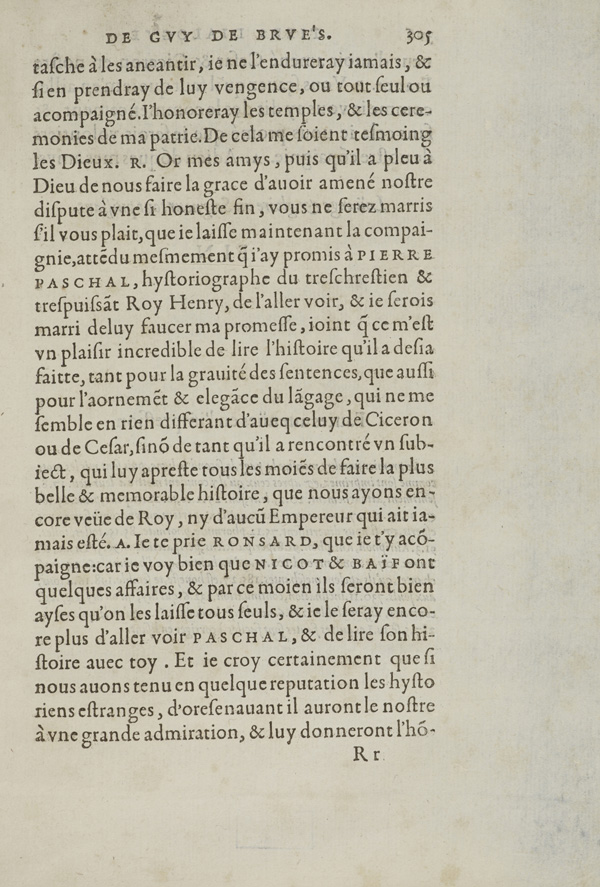 DE GVY DE BRVE'S. 305
tasche à les aneantir, ie ne l'endureray iamais, &
si en prendray de luy vengence, ou tout seul ou
acompaigné. I'honoreray les temples, & les cere-
monies de ma patrie. De cela me soient tesmoing
les Dieux. R. Or mes amys, puis qu'il a pleu à
Dieu de nous faire la grace d'auoir amené nostre
dispute à vne si honeste fin, vous ne serez marris
s'il vous plait, que ie laisse maintenant la compai-
gnie, attēdu mesmement q̃ i'ay promis à PIERRE
PASCHAL, hystoriographe du treschrestien &
trespuissāt Roy Henry, de l'aller voir, & ie serois
marri deluy faucer ma promesse, ioint q̃ ce m'est
vn plaisir incredible de lire l'histoire qu'il a desia
faitte, tant pour la grauité des sentences, que aussi
pour l'aornemēt & elegāce du lāgage, qui ne me
semble en rien differant d'aueq celuy de Ciceron
ou de Cesar, sinō de tant qu'il a rencontré vn sub-
iect, qui luy apreste tous les moiēs de faire la plus
belle & memorable histoire, que nous ayons en-
core veüe de Roy, ny d'aucū Empereur qui ait ia-
mais esté. A. Ie te prie RONSARD, que ie t'y acō-
paigne: car ie voy bien que NICOT & BAÏF ont
quelques affaires, & par ce moien ils seront bien
ayses qu'on les laisse tous seuls, & ie le seray enco-
re plus d'aller voir PASCHAL, & de lire son hi-
stoire auec toy. Et ie croy certainement que si
nous auons tenu en quelque reputation les hysto
riens estranges, d'oresenauant il auront le nostre
à vne grande admiration, & luy donneront l'hō-
Rr